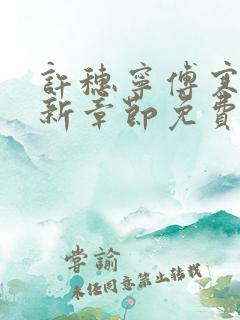 許穗寧傅寒
新章節免費
掌諭
未經同意禁止轉載